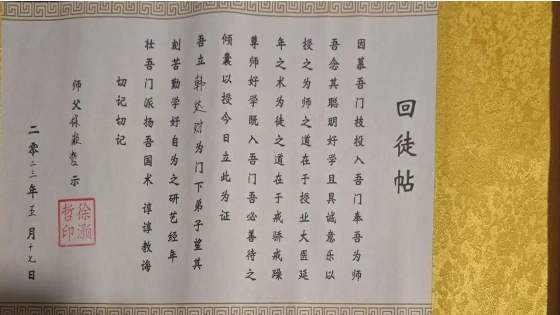 回徒帖
因慕吾门技投入吾门奉吾为师
吾念其聪明好学且具诚意乐以
授之为师之道在于授业大医延
年之术为徒之道在于戒骄戒躁
尊师好学既入吾门吾必善待之
倾囊以授今日立此为证
吾立韩为门下弟子望其
刻苦勤学好自为之研艺经年
壮吾门派扬吾国术 谆谆教诲
切记切记
师父徐灏哲示
二零二三年五月十九日
徐灏哲印